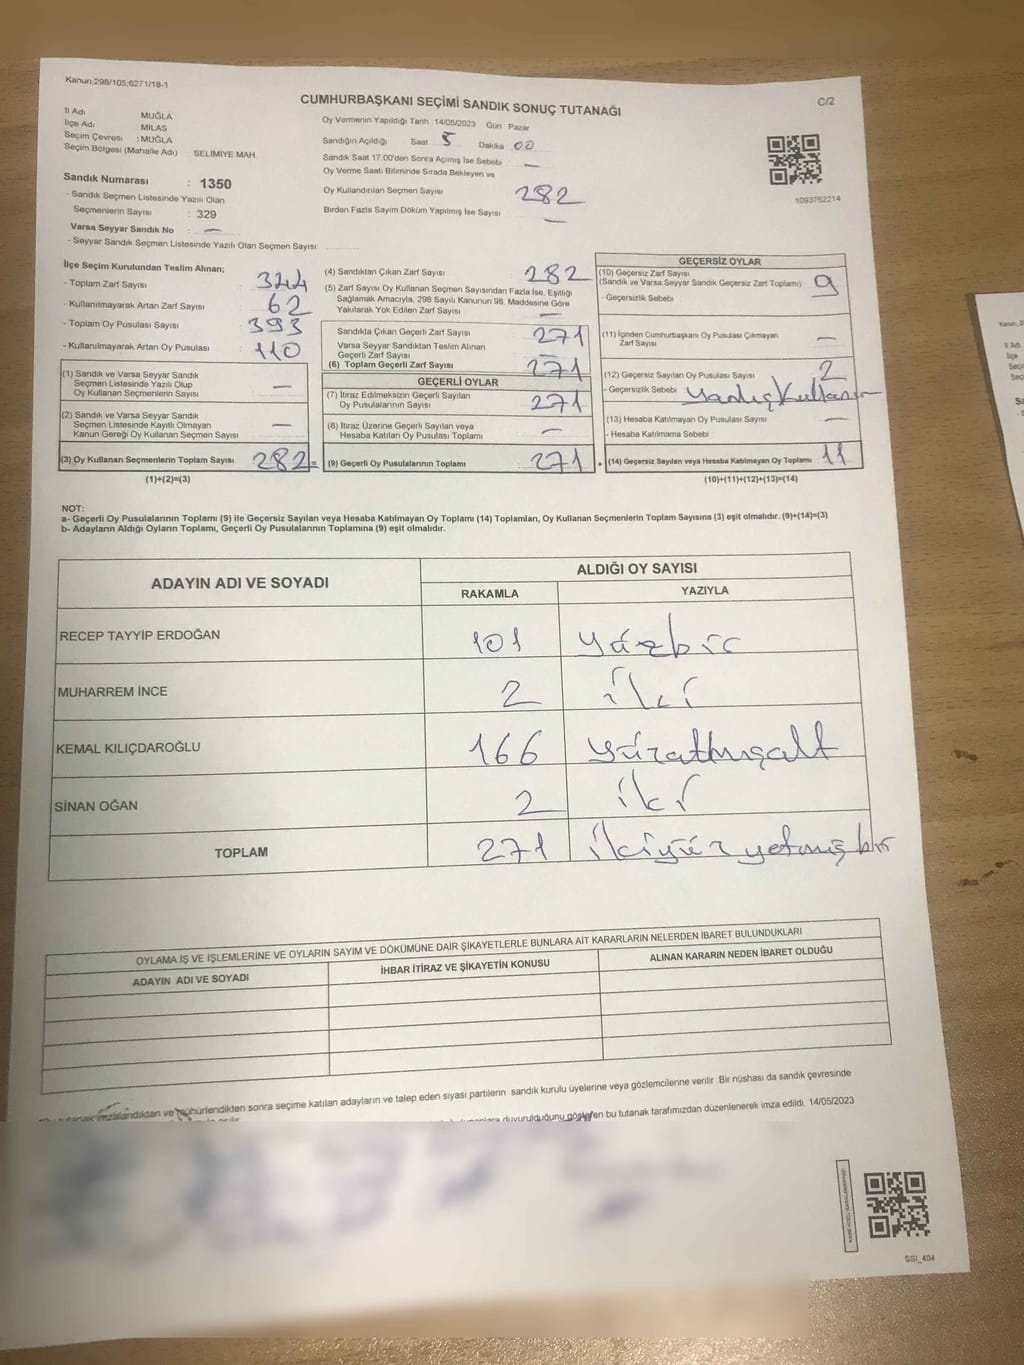 Kanun,298/105,6271/18-1
CUMHURBAŞKANI SEÇİMİ SANDIK SONUÇ TUTANAĞI
C/2
İl Adı MUĞLA
İlçe Adı : MİLAS
Seçim Çevresi : MUĞLA
Seçim Bölgesi (Mahalle Adı) SELİMİYE MAH.
Sandık Numarası : 1350
- Sandık Seçmen Listesinde Yazılı Olan
Seçmenlerin Sayısı : 329
Varsa Seyyar Sandık No : —
- Seyyar Sandık Seçmen Listesinde Yazılı Olan Seçmen Sayısı:
Oy Vermenin Yapıldığı Tarih :14/05/2023 Gün : Pazar
Sandığın Açıldığı Saat 5 Dakika 00
Sandık Saat 17.00'den Sonra Açılmış İse Sebebi —
Oy Verme Saati Bitiminde Sırada Bekleyen ve
Oy Kullandırılan Seçmen Sayısı 282
Birden Fazla Sayım Döküm Yapılmış İse Sayısı —
1093762214
İlçe Seçim Kurulundan Teslim Alınan;
- Toplam Zarf Sayısı 344
- Kullanılmayarak Artan Zarf Sayısı 62
- Toplam Oy Pusulası Sayısı 393
- Kullanılmayarak Artan Oy Pusulası 110
(1) Sandık ve Varsa Seyyar Sandık
Seçmen Listesinde Yazılı Olup
Oy Kullanan Seçmenlerin Sayısı —
(2) Sandık ve Varsa Seyyar Sandık
Seçmen Listesinde Kayıtlı Olmayan
Kanun Gereği Oy Kullanan Seçmen Sayısı —
(3) Oy Kullanan Seçmenlerin Toplam Sayısı 282 =
(1)+(2)=(3)
(4) Sandıktan Çıkan Zarf Sayısı 282
(5) Zarf Sayısı Oy Kullanan Seçmen Sayısından Fazla İse, Eşitliği
Sağlamak Amacıyla, 298 Sayılı Kanunun 98. Maddesine Göre
Yakılarak Yok Edilen Zarf Sayısı —
Sandıkta Çıkan Geçerli Zarf Sayısı 271
Varsa Seyyar Sandıktan Teslim Alınan
Geçerli Zarf Sayısı —
(6) Toplam Geçerli Zarf Sayısı 271
GEÇERLİ OYLAR
(7) İtiraz Edilmeksizin Geçerli Sayılan
Oy Pusulalarının Sayısı 271
(8) İtiraz Üzerine Geçerli Sayılan veya
Hesaba Katılan Oy Pusulası Toplamı —
(9) Geçerli Oy Pusulalarının Toplamı 271 +
GEÇERSİZ OYLAR
(10) Geçersiz Zarf Sayısı
(Sandık ve Varsa Seyyar Sandık Geçersiz Zarf Toplamı) 9
- Geçersizlik Sebebi
(11) İçinden Cumhurbaşkanı Oy Pusulası Çıkmayan
Zarf Sayısı —
(12) Geçersiz Sayılan Oy Pusulası Sayısı 2
- Geçersizlik Sebebi yanlış kullanım
(13) Hesaba Katılmayan Oy Pusulası Sayısı —
- Hesaba Katılmama Sebebi
(14) Geçersiz Sayılan veya Hesaba Katılmayan Oy Toplamı 11
(10)+(11)+(12)+(13)=(14)
NOT:
a- Geçerli Oy Pusulalarının Toplamı (9) ile Geçersiz Sayılan veya Hesaba Katılmayan Oy Toplamı (14) Toplamları, Oy Kullanan Seçmenlerin Toplam Sayısına (3) eşit olmalıdır. (9)+(14)=(3)
b- Adayların Aldığı Oyların Toplamı, Geçerli Oy Pusulalarının Toplamına (9) eşit olmalıdır.
ADAYIN ADI VE SOYADI
ALDIĞI OY SAYISI
RAKAMLA YAZIYLA
RECEP TAYYİP ERDOĞAN 101 yüzbir
MUHARREM İNCE 2 iki
KEMAL KILIÇDAROĞLU 166 yüzatmışaltı
SİNAN OĞAN 2 iki
TOPLAM 271 ikiyüzyetmişbir
OYLAMA İŞ VE İŞLEMLERİNE VE OYLARIN SAYIM VE DÖKÜMÜNE DAİR ŞİKAYETLERLE BUNLARA AİT KARARLARIN NELERDEN İBARET BULUNDUKLARI
ADAYIN ADI VE SOYADI İHBAR İTİRAZ VE ŞİKAYETİN KONUSU ALINAN KARARIN NEDEN İBARET OLDUĞU
tutanak imzalandıktan ve mühürlendikten sonra seçime katılan adayların ve talep eden siyasi partilerin sandık kurulu üyelerine veya gözlemcilerine verilir. Bir nüshası da sandık çevresinde
duyurulduğunu gösteren bu tutanak tarafımızdan düzenlenerek imza edildi. 14/05/2023
SSI_404